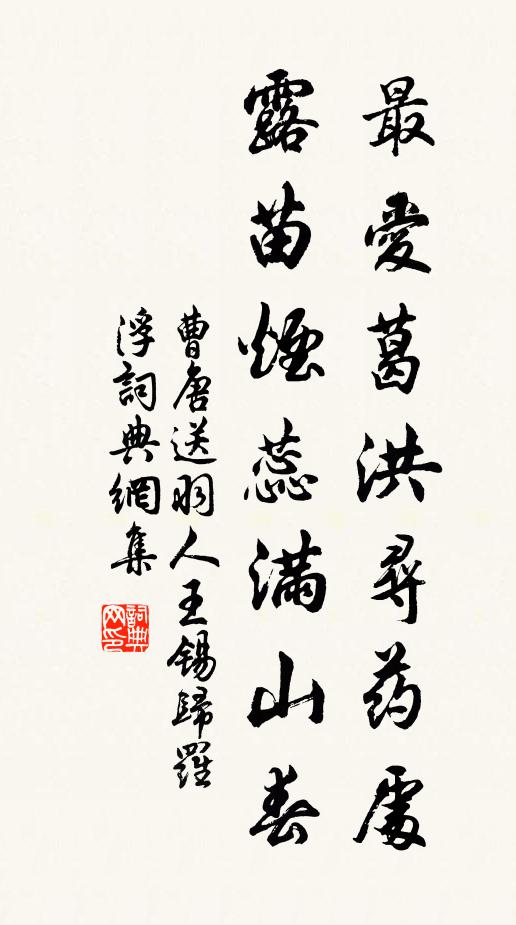 最愛葛洪尋药處
露苗煙蕊滿山春
曹唐送羽人王錫歸羅
浮詞典網集
詞典网印